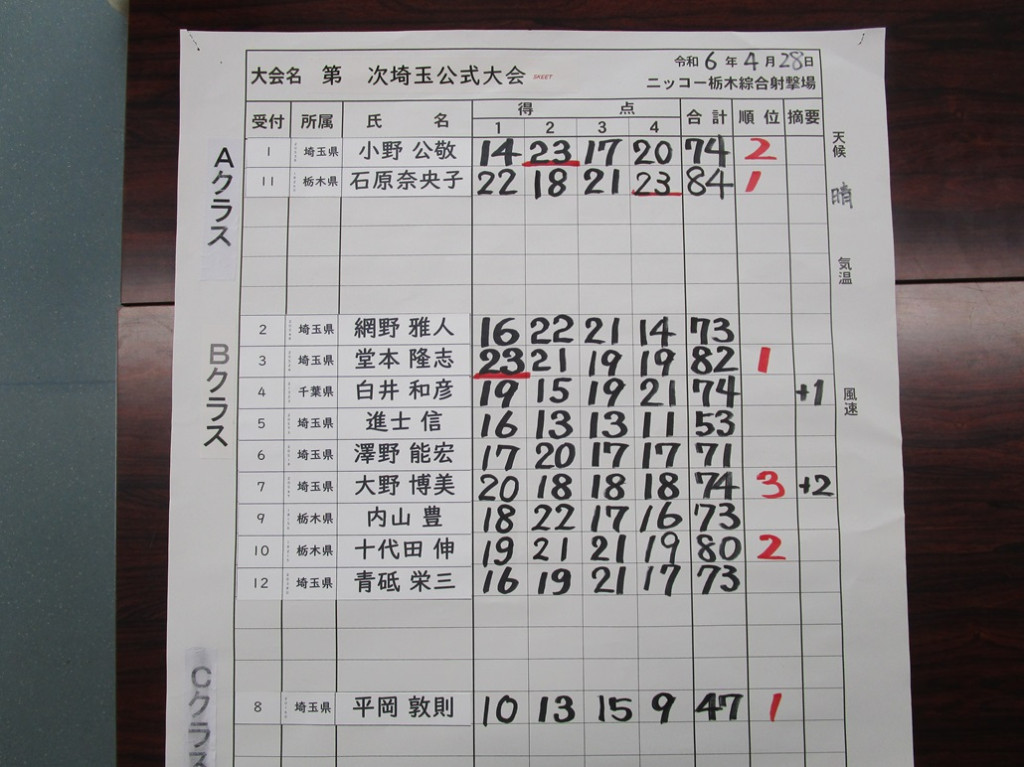 大会名 第 次埼玉公式大会 SKEET
令和 6 年 4 月 28 日
ニッコー栃木綜合射撃場
受付 所属 氏 名 得 点 合計 順位 摘要
1 2 3 4
Aクラス
1 埼玉県 小野 公敬 14 23 17 20 74 2
11 栃木県 石原奈央子 22 18 21 23 84 1
天候
晴
気温
風速
Bクラス
2 埼玉県 網野 雅人 16 22 21 14 73
3 埼玉県 堂本 隆志 23 21 19 19 82 1
4 千葉県 白井 和彦 19 15 19 21 74 +1
5 埼玉県 進士 信 16 13 13 11 53
6 埼玉県 澤野 能宏 17 20 17 17 71
7 埼玉県 大野 博美 20 18 18 18 74 3 +2
9 栃木県 内山 豊 18 22 17 16 73
10 栃木県 十代田 伸 19 21 21 19 80 2
12 埼玉県 青砥 栄三 16 19 21 17 73
Cクラス
8 埼玉県 平岡 敦則 10 13 15 9 47 1